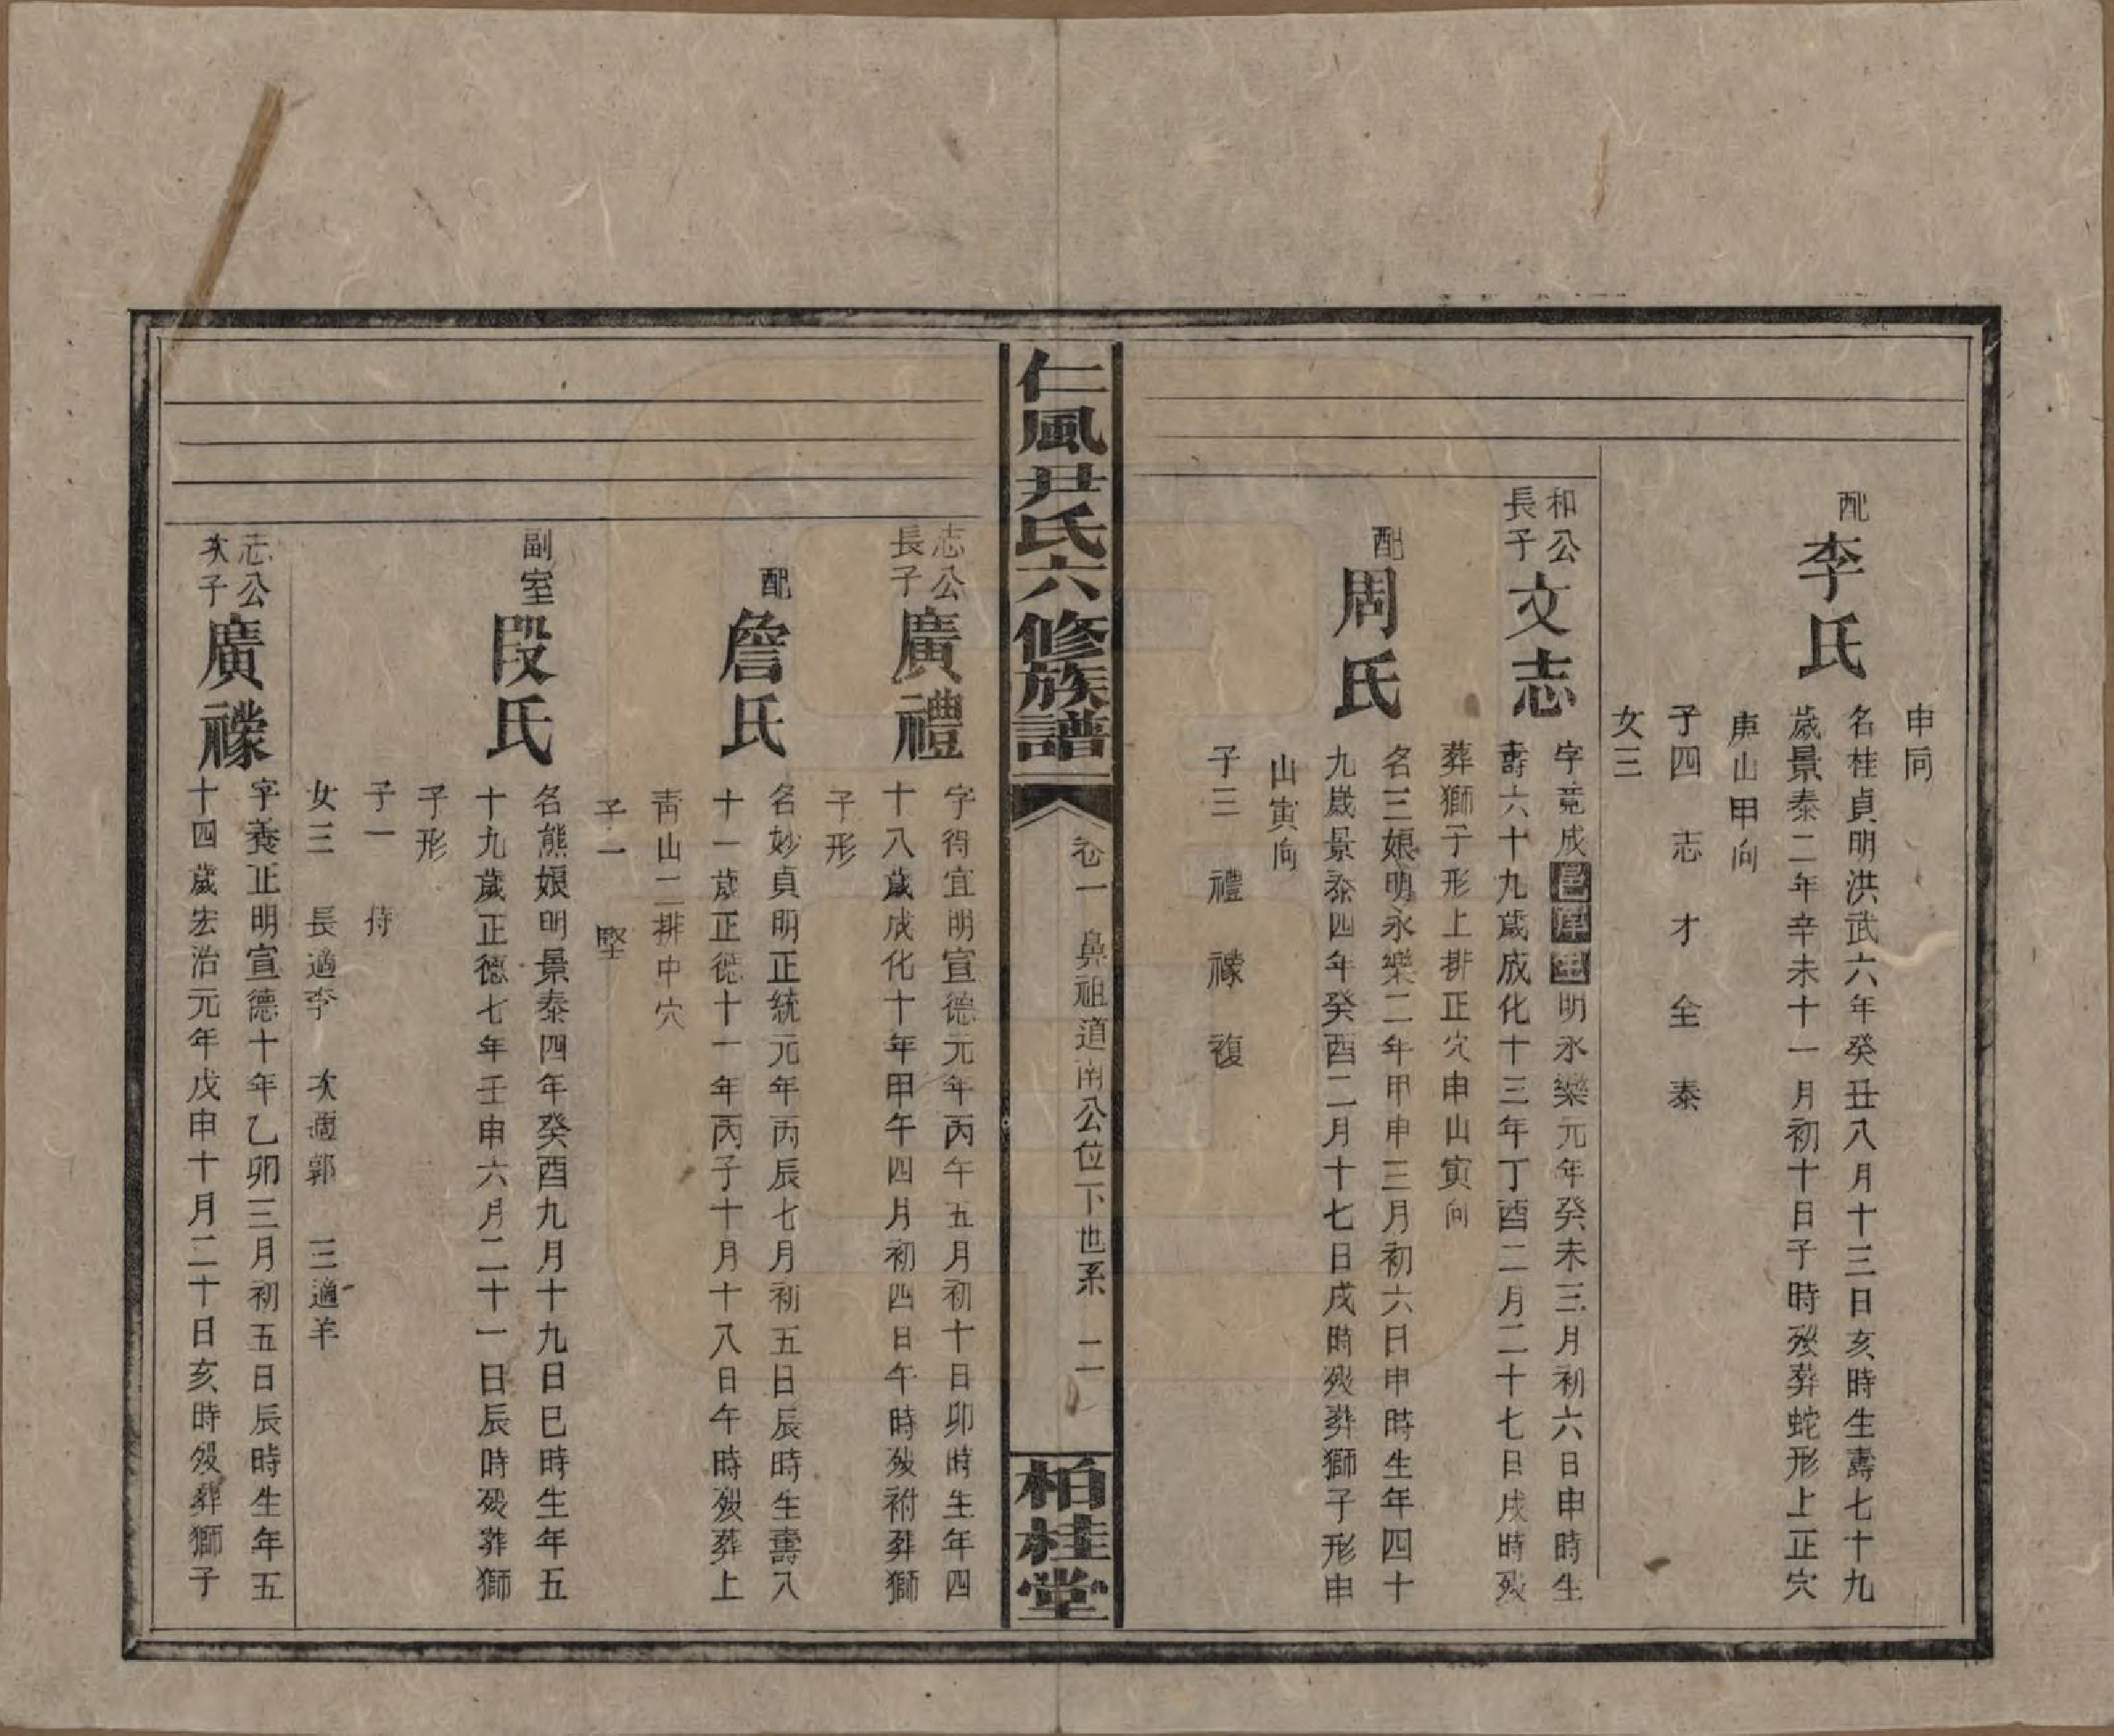 申向
配李氏
名桂貞明洪武六年癸丑八月十三日亥時生壽七十九
歲景泰二年辛未十一月初十日子時歿葬蛇形上正穴
庚山甲向
子四 志 才 全 泰
女三
和公長子文志
字竟成邑庠生明永樂元年癸未三月初六日申時生
壽六十九歲成化十三年丁酉二月二十七日戌時歿
葬獅子形上排正穴申山寅向
配周氏
名三娘明永樂二年甲申三月初六日申時生年四十
九歲景泰四年癸酉二月十七日戌時歿葬獅子形申
山寅向
子三 禮 禄 複
仁風尹氏六修族譜
卷一 鼻祖道南公位下世系 二
柏桂堂
志公長子廣禮
字得宜明宣德元年丙午五月初十日卯時生年四
十八歲成化十年甲午四月初四日午時歿祔葬獅
子形
配詹氏
名妙貞明正統元年丙辰七月初五日辰時生壽八
十一歲正德十一年丙子十月十八日午時歿葬上
青山二排中穴
子一 堅
副室段氏
名熊娘明景泰四年癸酉九月十九日巳時生年五
十九歲正德七年壬申六月二十一日辰時歿葬獅
子形
子一 侍
女三 長適李 次適郭 三適羊
志公次子廣禄
字養正明宣德十年乙卯三月初五日辰時生年五
十四歲宏治元年戊申十月二十日亥時歿葬獅子